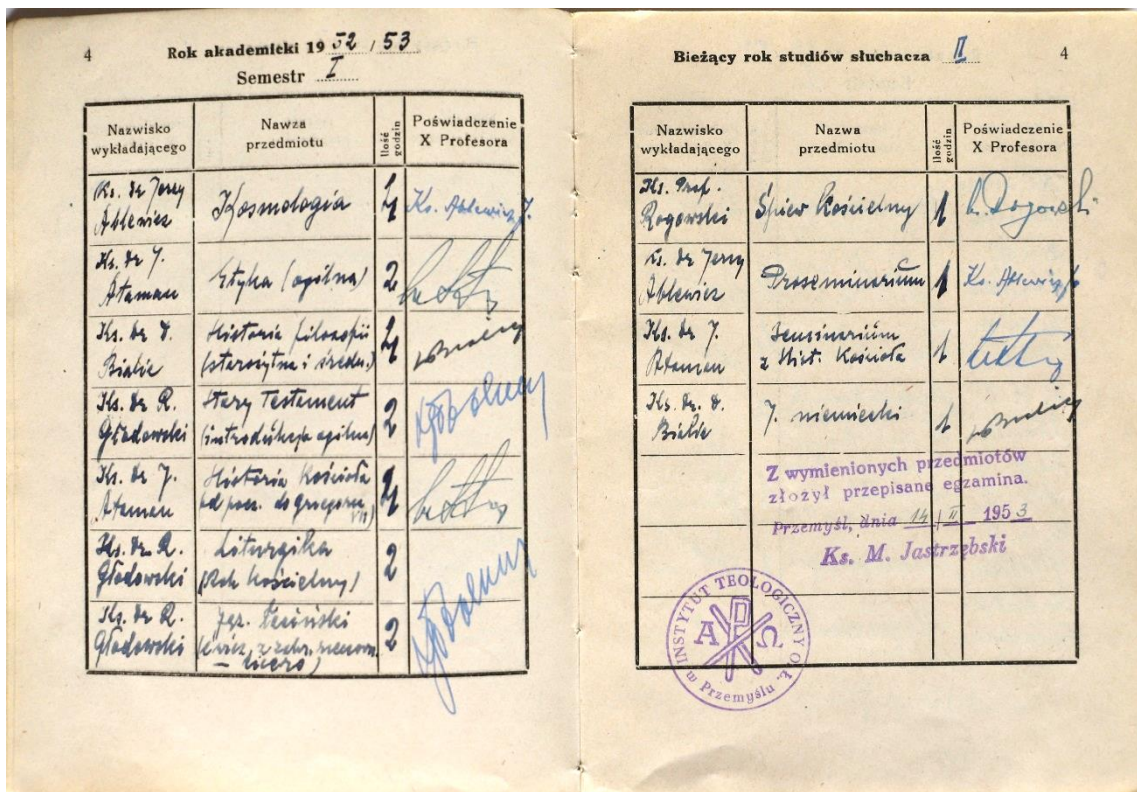 4
Rok akademicki 19 52 / 53
Semestr I
Nazwisko
wykładającego
Nawza
przedmiotu
Ilość
godzin
Poświadczenie
X Profesora
Ks. dr Jerzy
Ablewicz
Kosmologia
4
Ks. Ablewicz J.
Ks. dr J.
Ataman
Etyka (ogólna)
2
Ks. dr
Bialic
Historia filozofii
(starożytna i średn.)
4
Ks. dr R.
Głodowski
Stary Testament
(introdukcja ogólna)
2
Ks. dr J.
Ataman
Historia Kościoła
od pocz. do Grzegorza VII)
4
Ks. dr R.
Głodowski
Liturgika
(Rok kościelny)
2
Ks. dr R.
Głodowski
Jęz. łaciński
2
Bieżący rok studiów słuchacza II
4
Nazwisko
wykładającego
Nazwa
przedmiotu
Ilość
godzin
Poświadczenie
X Profesora
Ks. Prof.
Rogowski
Śpiew Kościelny
1
Ks. dr Jerzy
Ablewicz
Proseminarium
1
Ks. Ablewicz J.
Ks. dr J.
Ataman
Seminarium
z Hist. Kościoła
1
Ks. dr
Bialic
J. niemiecki
1
Z wymienionych przedmiotów
złożył przepisane egzamina.
Przemyśl, dnia 14 / II 1953
Ks. M. Jastrzębski
INSTYTUT TEOLOGICZNY O.Ł.
w Przemyślu
Α Ω